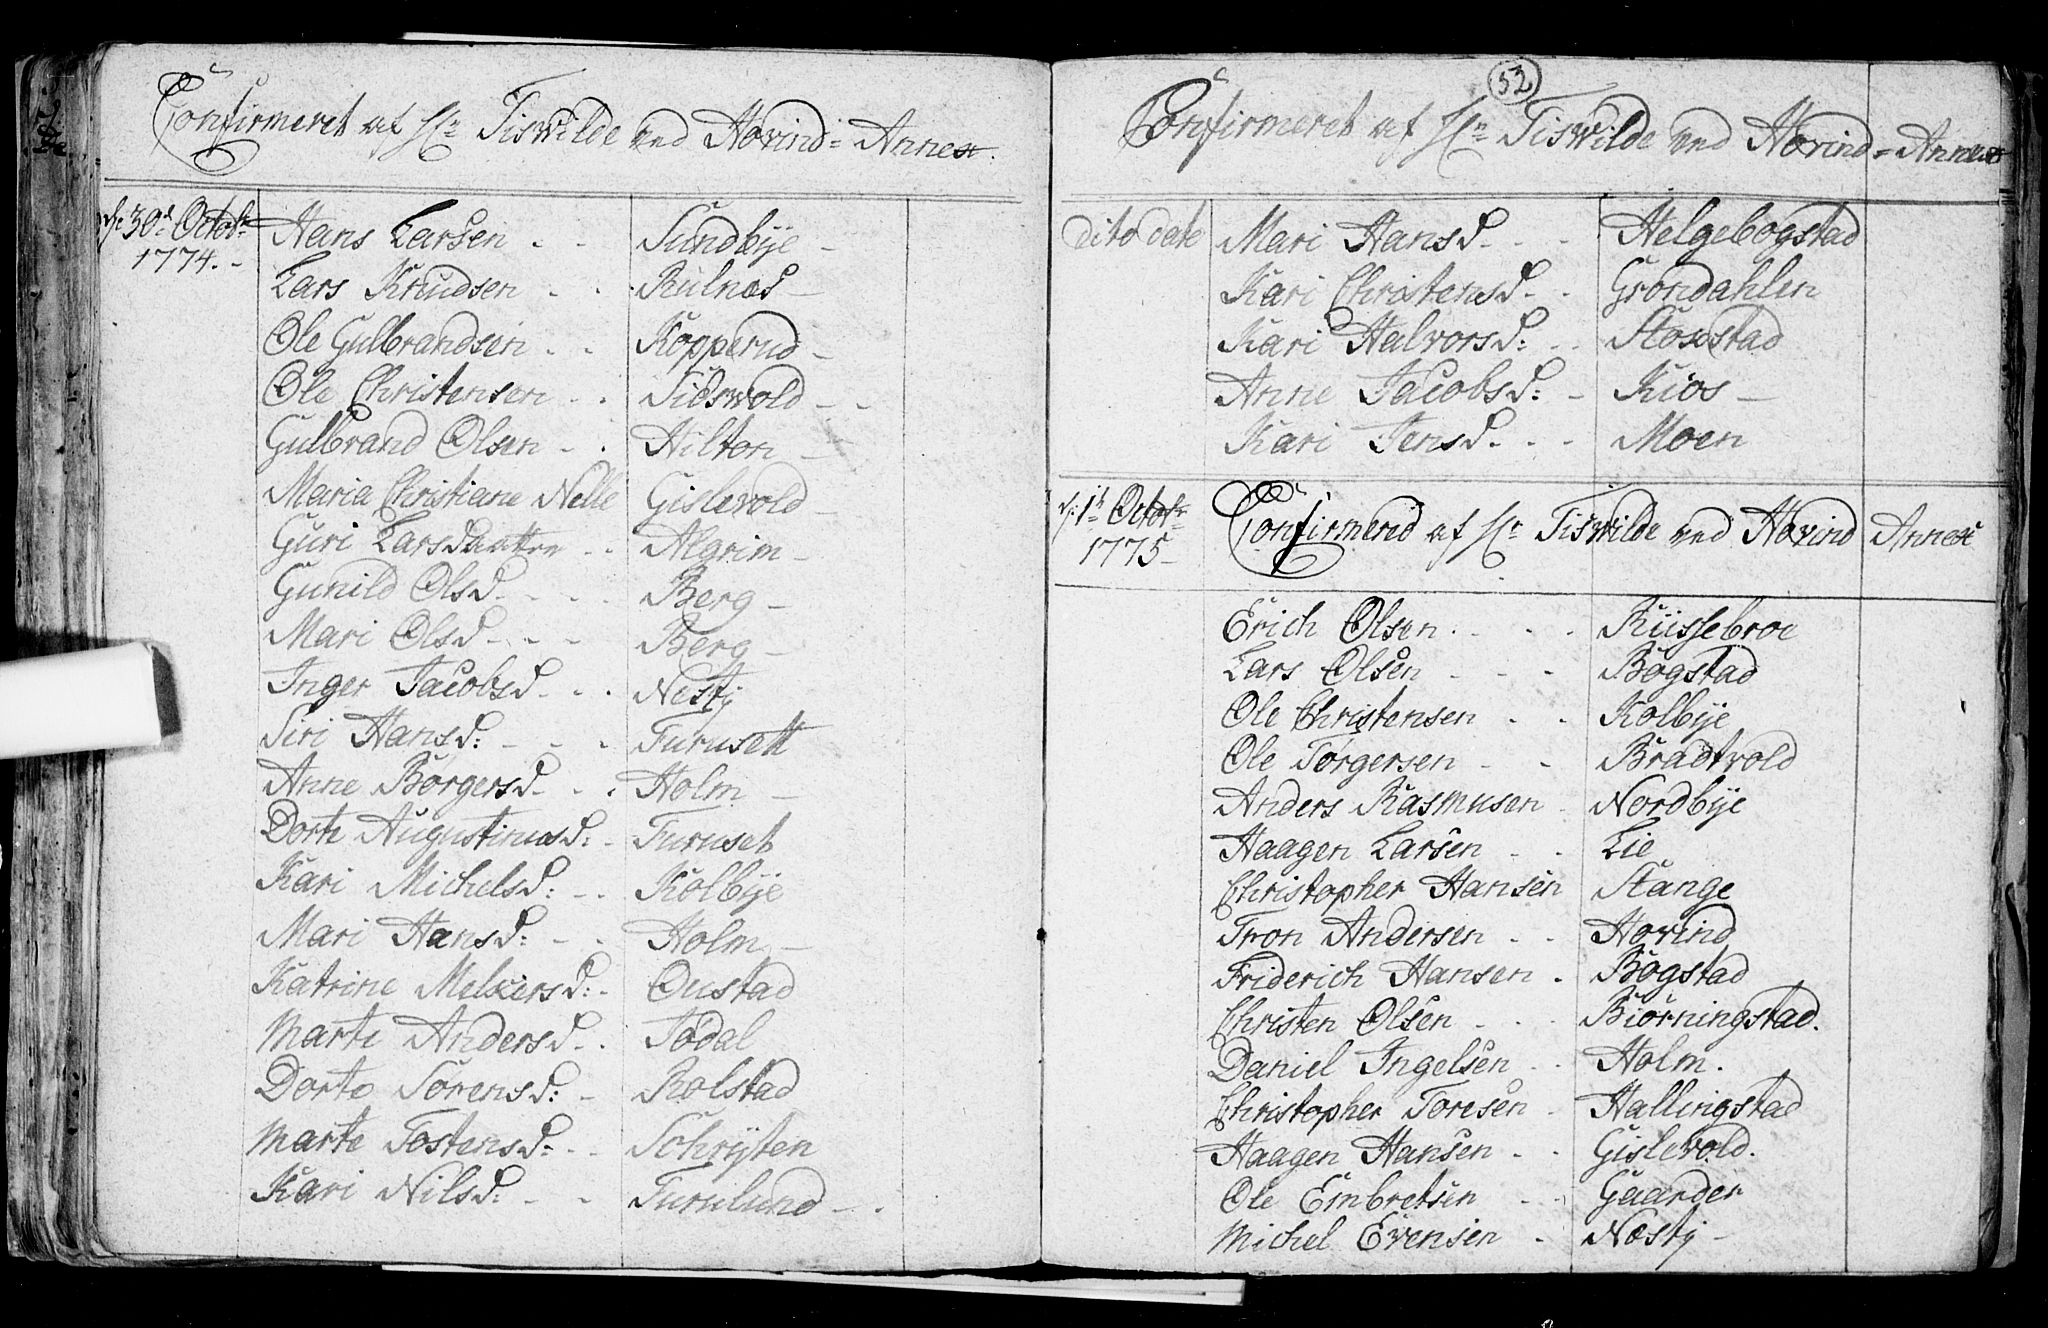 Confirmeret af Hr: Tiswilde ved Hovind= Annex.
d: 30d Octobr: Hans Larsen - - Sundbÿe -
1774. -
Lars Knudsen - - Rulnæs -
Ole Gulbrandsen - - Kopperud -
Ole Christensen - - Sidsvold - -
Gulbrand Olsen - - Hilton -
Maria Christiane Nelle Gislevold -
Guri Larsdautter - - Algrim -
Gunild Olsd. - - - Berg -
Mari Olsd - - - Berg -
Inger Jacobsd - - - Nestÿ
Siri Hansd: - - - Furusett
Anne Børgersd - - - Holm -
Dorte Augustinusd: - Furuset
Kari Michelsd: - - Kolbÿe
Mari Hansd: - - Holm -
Katrine Melkersd: - Oustad
Marte Andersd - - Jødal
Dorte Sørensd: - Rolstad
Marte Tostensd: - - Schrÿten
Kari Nilsd: - - Furulund - -
52
Confirmeret af Hr: Tiswilde ved Hovind= Annex
Dito date Mari Hansd - - - Helgebogstad
Kari Christensd - - Grøndahlen
Kari Halvorsd: - - Stoxstad
Anne Jacobsd: - Kios -
Kari Jensd - - - Moen
d: 1te Octobr: Confirmerid af Hr Tiswilde ved Hovind Annex
1775 -
Erich Olsen - - - - Kiissebroe
Lars Olsen - - - Bogstad
Ole Christensen - - Kolbÿe
Ole Tørgersen - - Bradtvold
Anders Rasmusen - Nordbÿe
Haagen Larsen - - Lie
Christopher Hansen Stange
Tron Andersen - - Hovind
Friderich Hansen - Bogstad
Christen Olsen - - - Biørningstad.
Daniel Ingelsen - - Holm.
Christopher Toresen - Hallingstad
Haagen Hansen - - Gislevold.
Ole Embretsen - - Gaarder
Michel Evensen - Næstÿ -